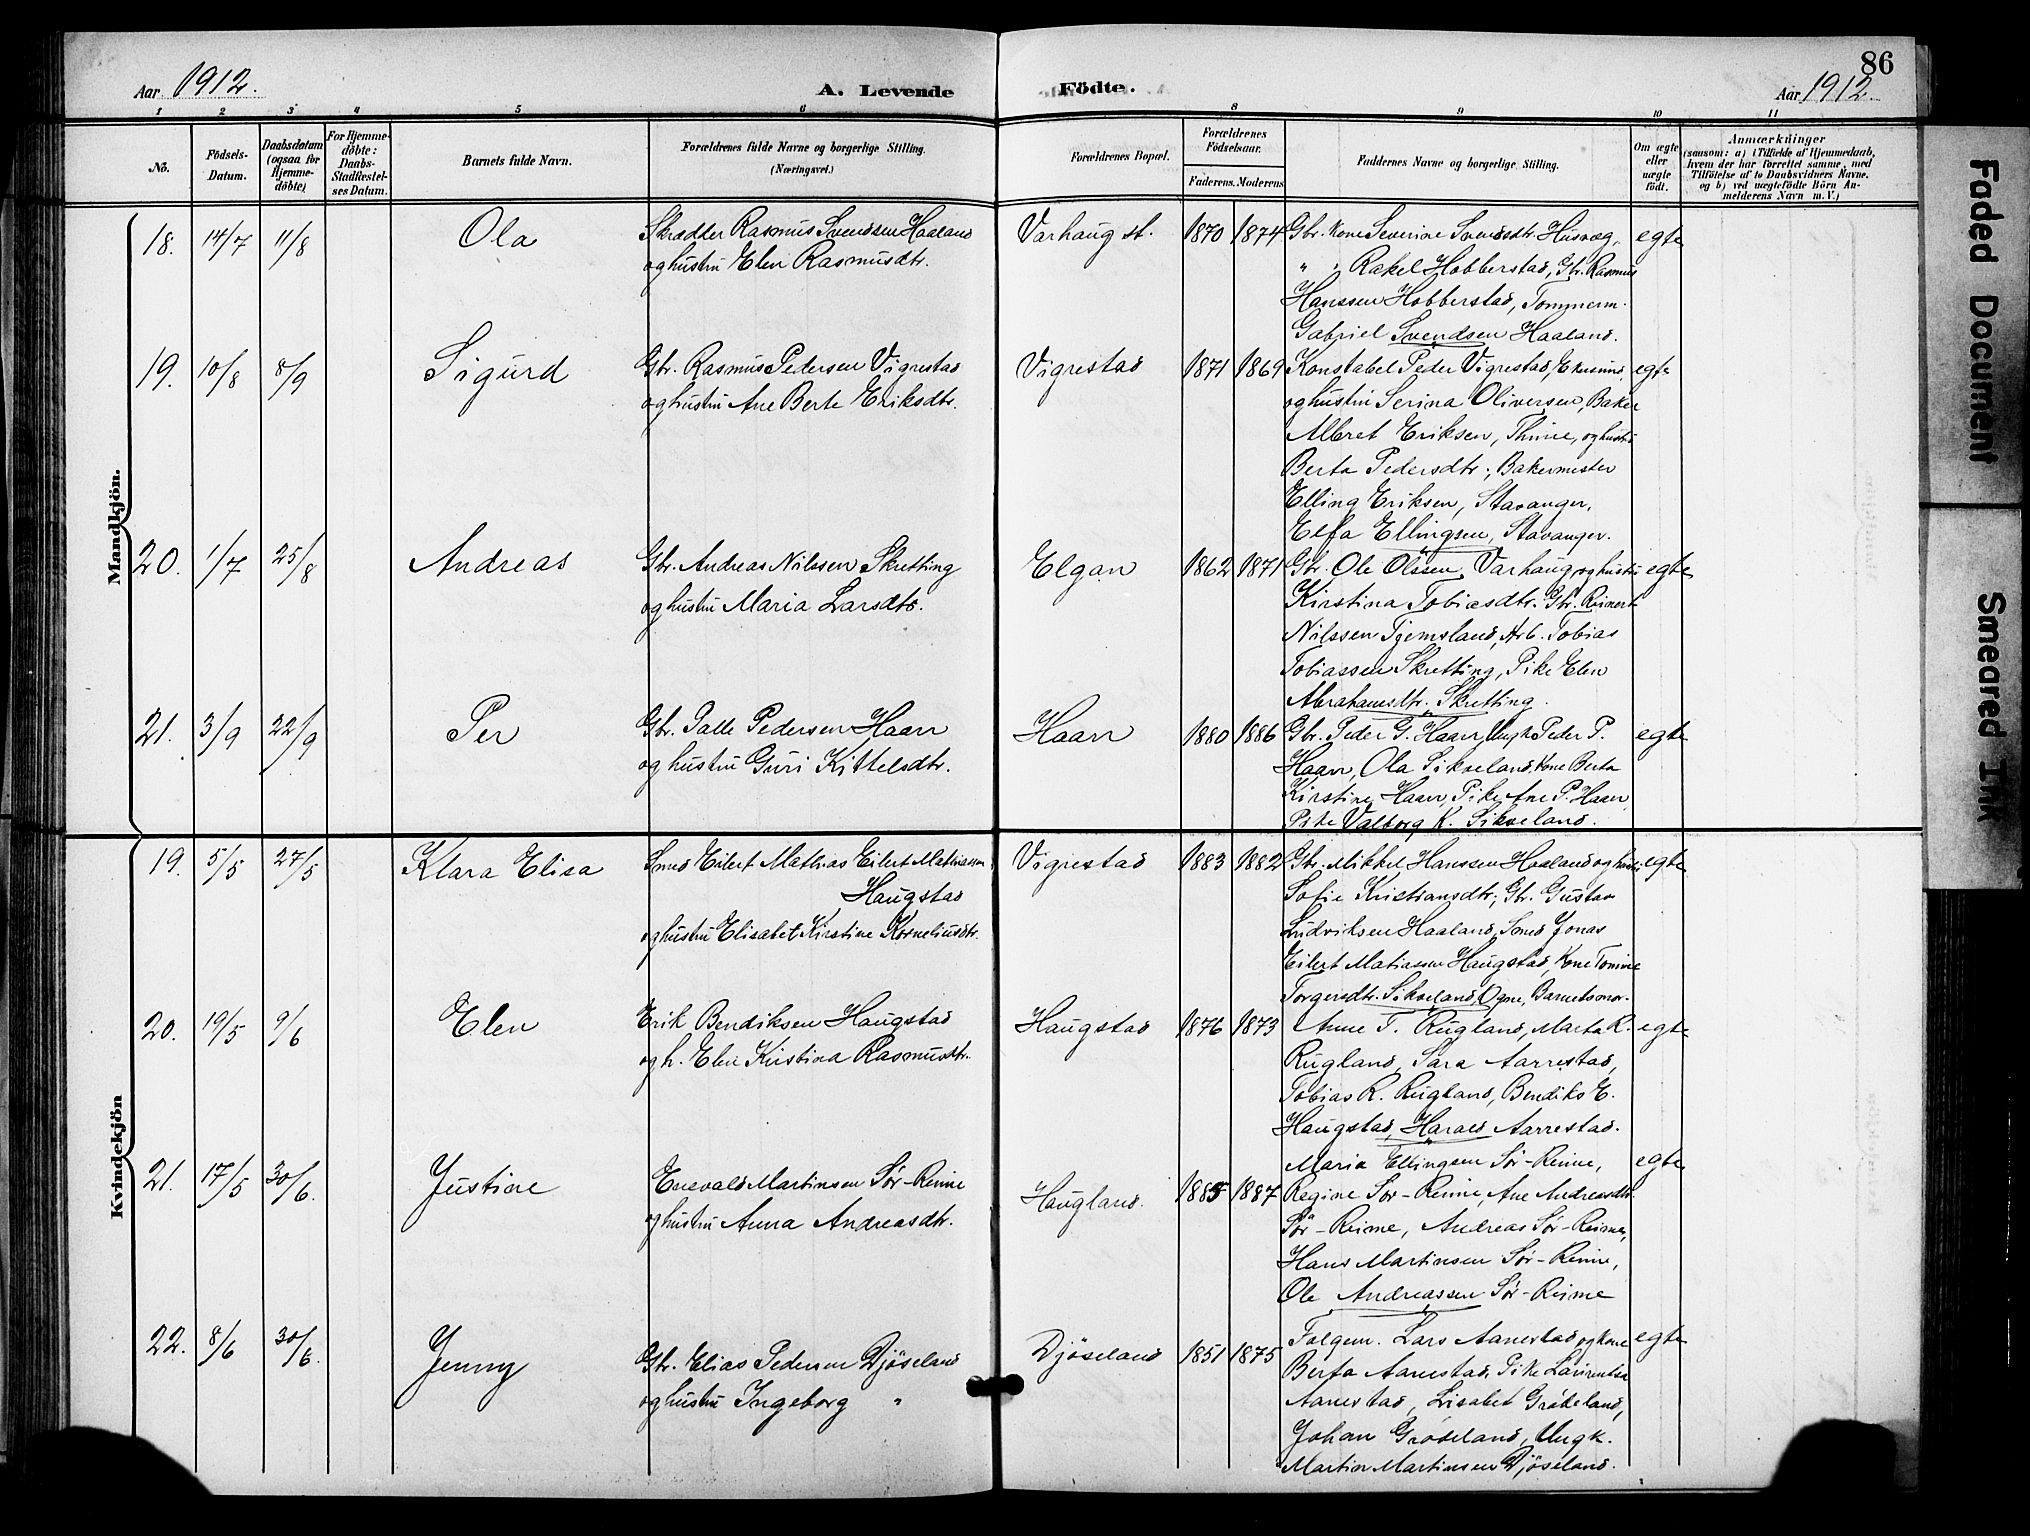 86
Aar 1912.
A. Levende
Födte.
Aar 1912.
1 2 3 4 5 6 8 9 10 11
No.
Födsels-Datum.
Daabsdatum (ogsaa for Hjemme-döbte)
For Hjemme-döbte: Daabs-Stadfæstel-ses Datum.
Barnets fulde Navn.
Forældrenes fulde Navne og borgerlige Stilling.
(Næringsvei.)
Forældrenes Bopæl.
Forældrenes Födselsaar.
Faderens. Moderens.
Faddernes Navne og borgerlige Stilling.
Om ægte eller uægte födt.
Anmærkninger
(saasom: a) i Tilfælde af Hjemmedaab,
hvem der har forrettet samme, med
Tilföielse af to Daabsvidners Navne.
og b) ved uægtefödte Börn An-
melderens Navn m. V.)
Mandkjön.
18. 14/7 11/8 Ola
Skrædder Rasmus Svendsen Haaland
og hustru Elen Rasmusdtr.
Varhaug st. 1870 1874
Gbr. kone Severine Svendsdtr. Husvæg,
" " Rakel Hobberstad, Gbr. Rasmus
Hanssen Hobberstad, Tommerm.
Gabriel Svendsen Haaland.
egte
19. 10/8 8/9 Sigurd
Gbr. Rasmus Pedersen Vigrestad
og hustru Ane Berte Eriksdtr.
Vigrestad 1871 1869
Konstabel Peder Vigrestad, Ekersund,
og hustru Serina Oliversen, Baker
Albret Eriksen, Thime, og hustru
Berta Pedersdtr.; Bakermester
Elling Eriksen, Stavanger,
Elfa Ellingsen, Stavanger.
egte
20. 1/7 25/8 Andreas
Gbr. Andreas Nilssen Skretting
og hustru Maria Larsdtr.
Elgan 1862 1871
Gbr. Ole Olssen Varhaug og hustru
Kirstina Tobiasdtr. Gbr. Reinert
Nilssen Tjemsland, Arb. Tobias
Tobiassen Skretting, Pike Elen
Abrahamsdtr. Skretting.
egte
21. 3/9 22/9 Per
Gbr. Palle Pedersen Haarr
og hustru Guri Kittelsdtr.
Haarr 1880 1886
Gbr. Peder G. Haarr, Ungk. Peder P.
Haarr, Ola Sikveland, Kone Berta
Kirstine Haarr, Pike Ane P. Haarr,
Pike Valborg K. Sikveland.
egte
Kvindekjön
19. 5/5 27/5 Klara Elisa
Smed Eilert Mathias Eilert Mathiassen
Haugstad
og hustru Elisabet Kirstine Korneliusdtr.
Vigrestad 1883 1882
Gbr. Mikkel Hanssen Haaland og hustru
Sofie Kristiansdtr; Gbr. Gustav
Ludviksen Haaland, Smed Jonas
Eilert Matiassen Haugstad, Kone Tomine
Torgersdtr. Sikveland, Ogne, Barnetsmor.
egte
20. 19/5 9/6 Elen
Erik Bendiksen Haugstad
og h. Elen Kristina Rasmusdtr.
Haugstad 1876 1873
Anne T. Rugland, Marta R.
Rugland, Sara Aarrestad,
Tobias R. Rugland, Bendiks E.
Haugstad, Harald Aarrestad.
egte
21. 17/5 30/6. Justine
Enevald Martinsen Sør-Reime
og hustru Anna Andreasdtr.
Haugland. 1885 1887
Maria Ellingsen Sør-Reime,
Regine Sør-Reime, Ane Andreasdtr.
Sør-Reime, Andreas Sør-Reime,
Hans Martinsen Sør-Reime,
Ole Andreassen Sør-Reime
egte
22. 8/6 30/6. Jenny
Gbr. Elias Pedersen Djöseland
og hustru Ingeborg "
Djöseland 1851 1875
Folgem. Lars Aanestad og kone
Berta Aanestad, Pike Laurentse
Aanestad, Lisabet Grødeland,
Johan Grødeland, Ungk.
Martin Martinsen Djöseland.
egte
Faded Document
Smeared Ink